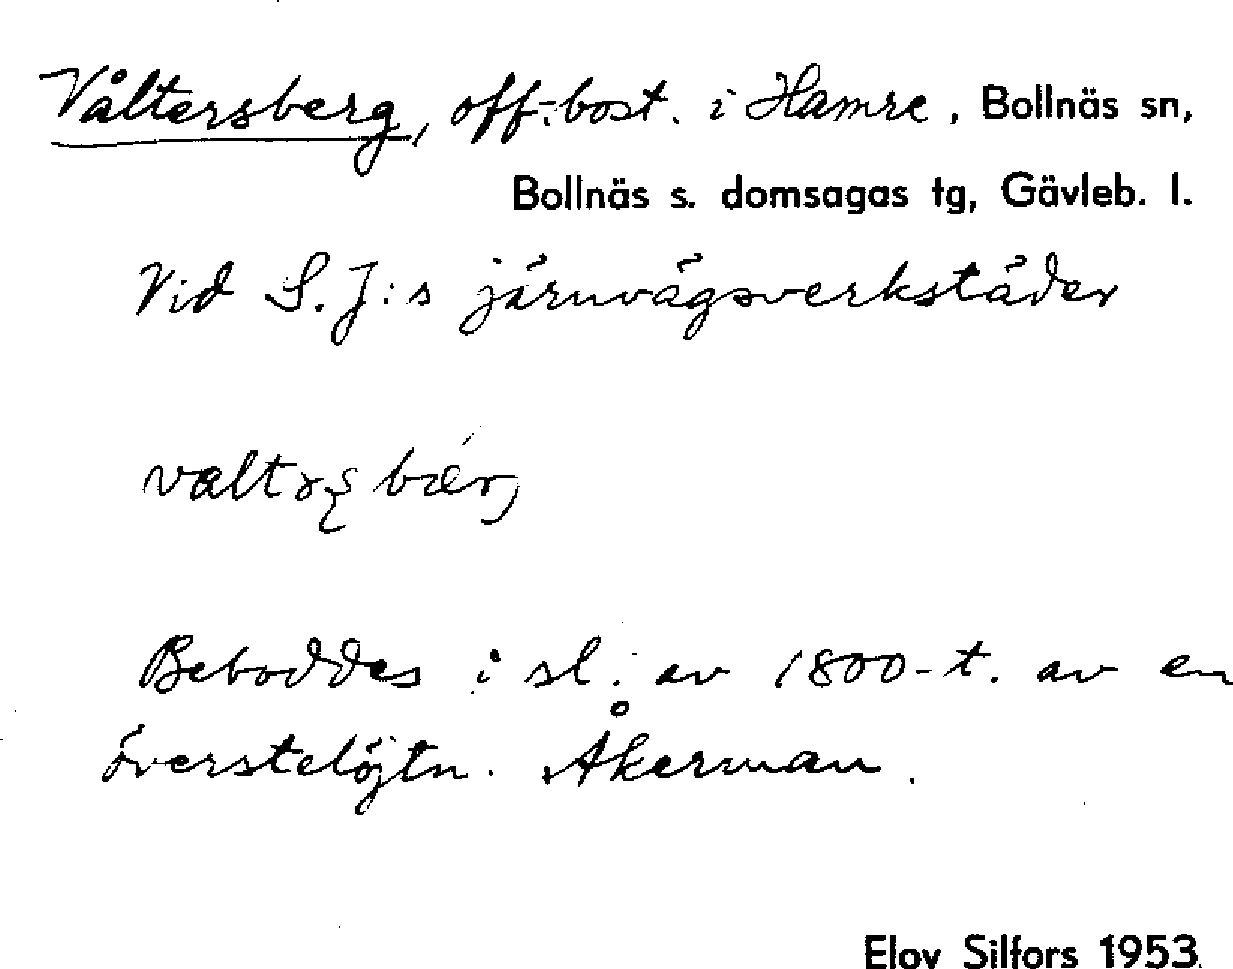 Våltersberg, off.bost. i Hamre, Bollnäs sn,
Bollnäs s. domsagas tg, Gävleb. l.
Vid S.J:s järnvägsverkstäder
Beboddes i sl. av 1800-t. av en
överstelöjtn. Åkerman.
Elov Silfors 1953